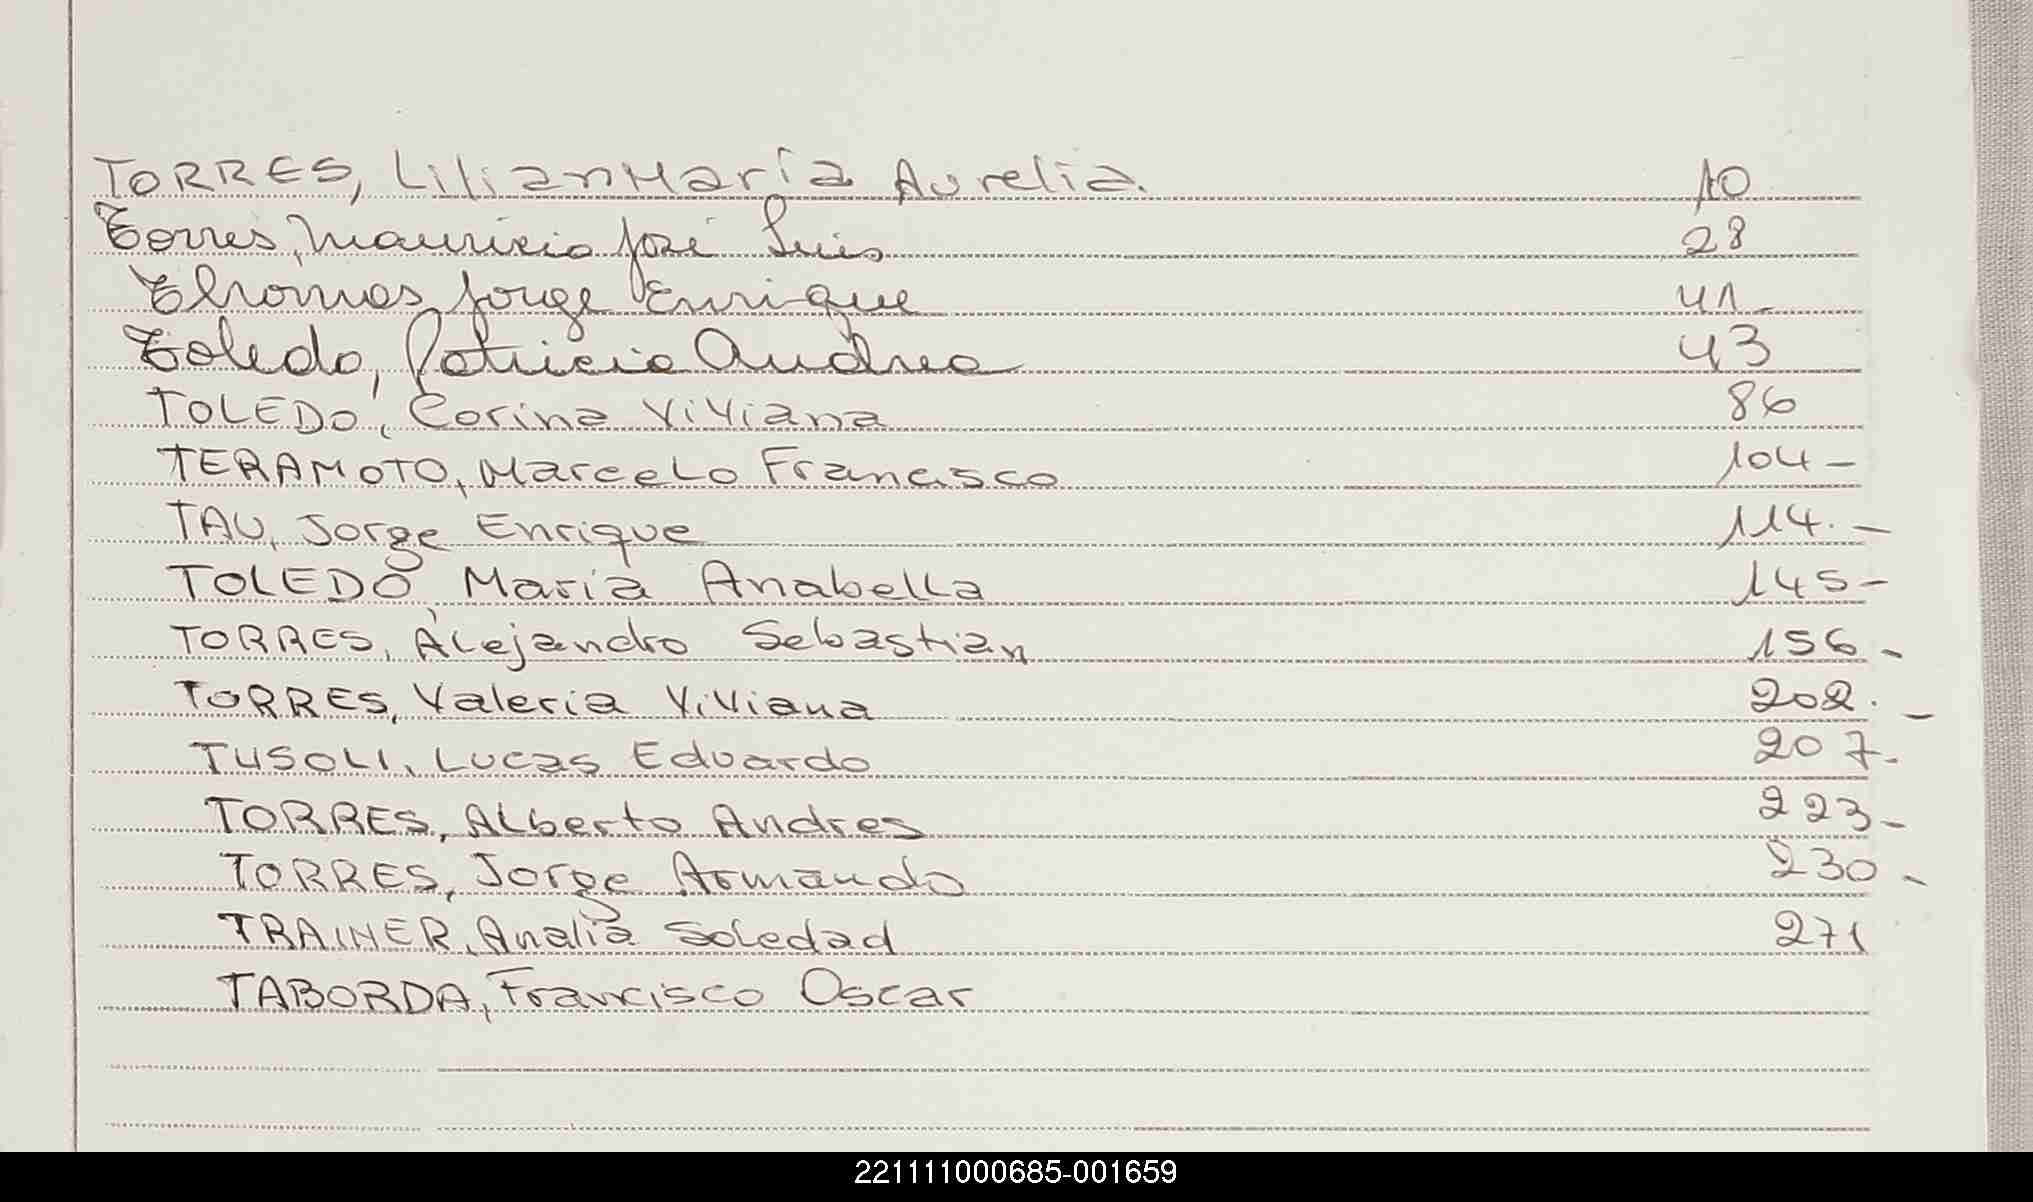 TORRES, Lilian María Aurelia. 10
Torres, Mauricio José Luis 28
Thomas Jorge Enrique 41_
Toledo, Patricia Andrea 43
TOLEDO, Corina Viviana 86
TERAMOTO, Marcelo Francisco 104-
TAU, Jorge Enrique 114.-
TOLEDO, Maria Anabella 145-
TORRES, Alejandro Sebastian 156-
TORRES, Valeria Viviana 202.-
TUSOLI, Lucas Eduardo 207-
TORRES, Alberto Andres 223-
TORRES, Jorge Armando 230-
TRAINER, Analia Soledad 271
TABORDA, Francisco Oscar
221111000685-001659